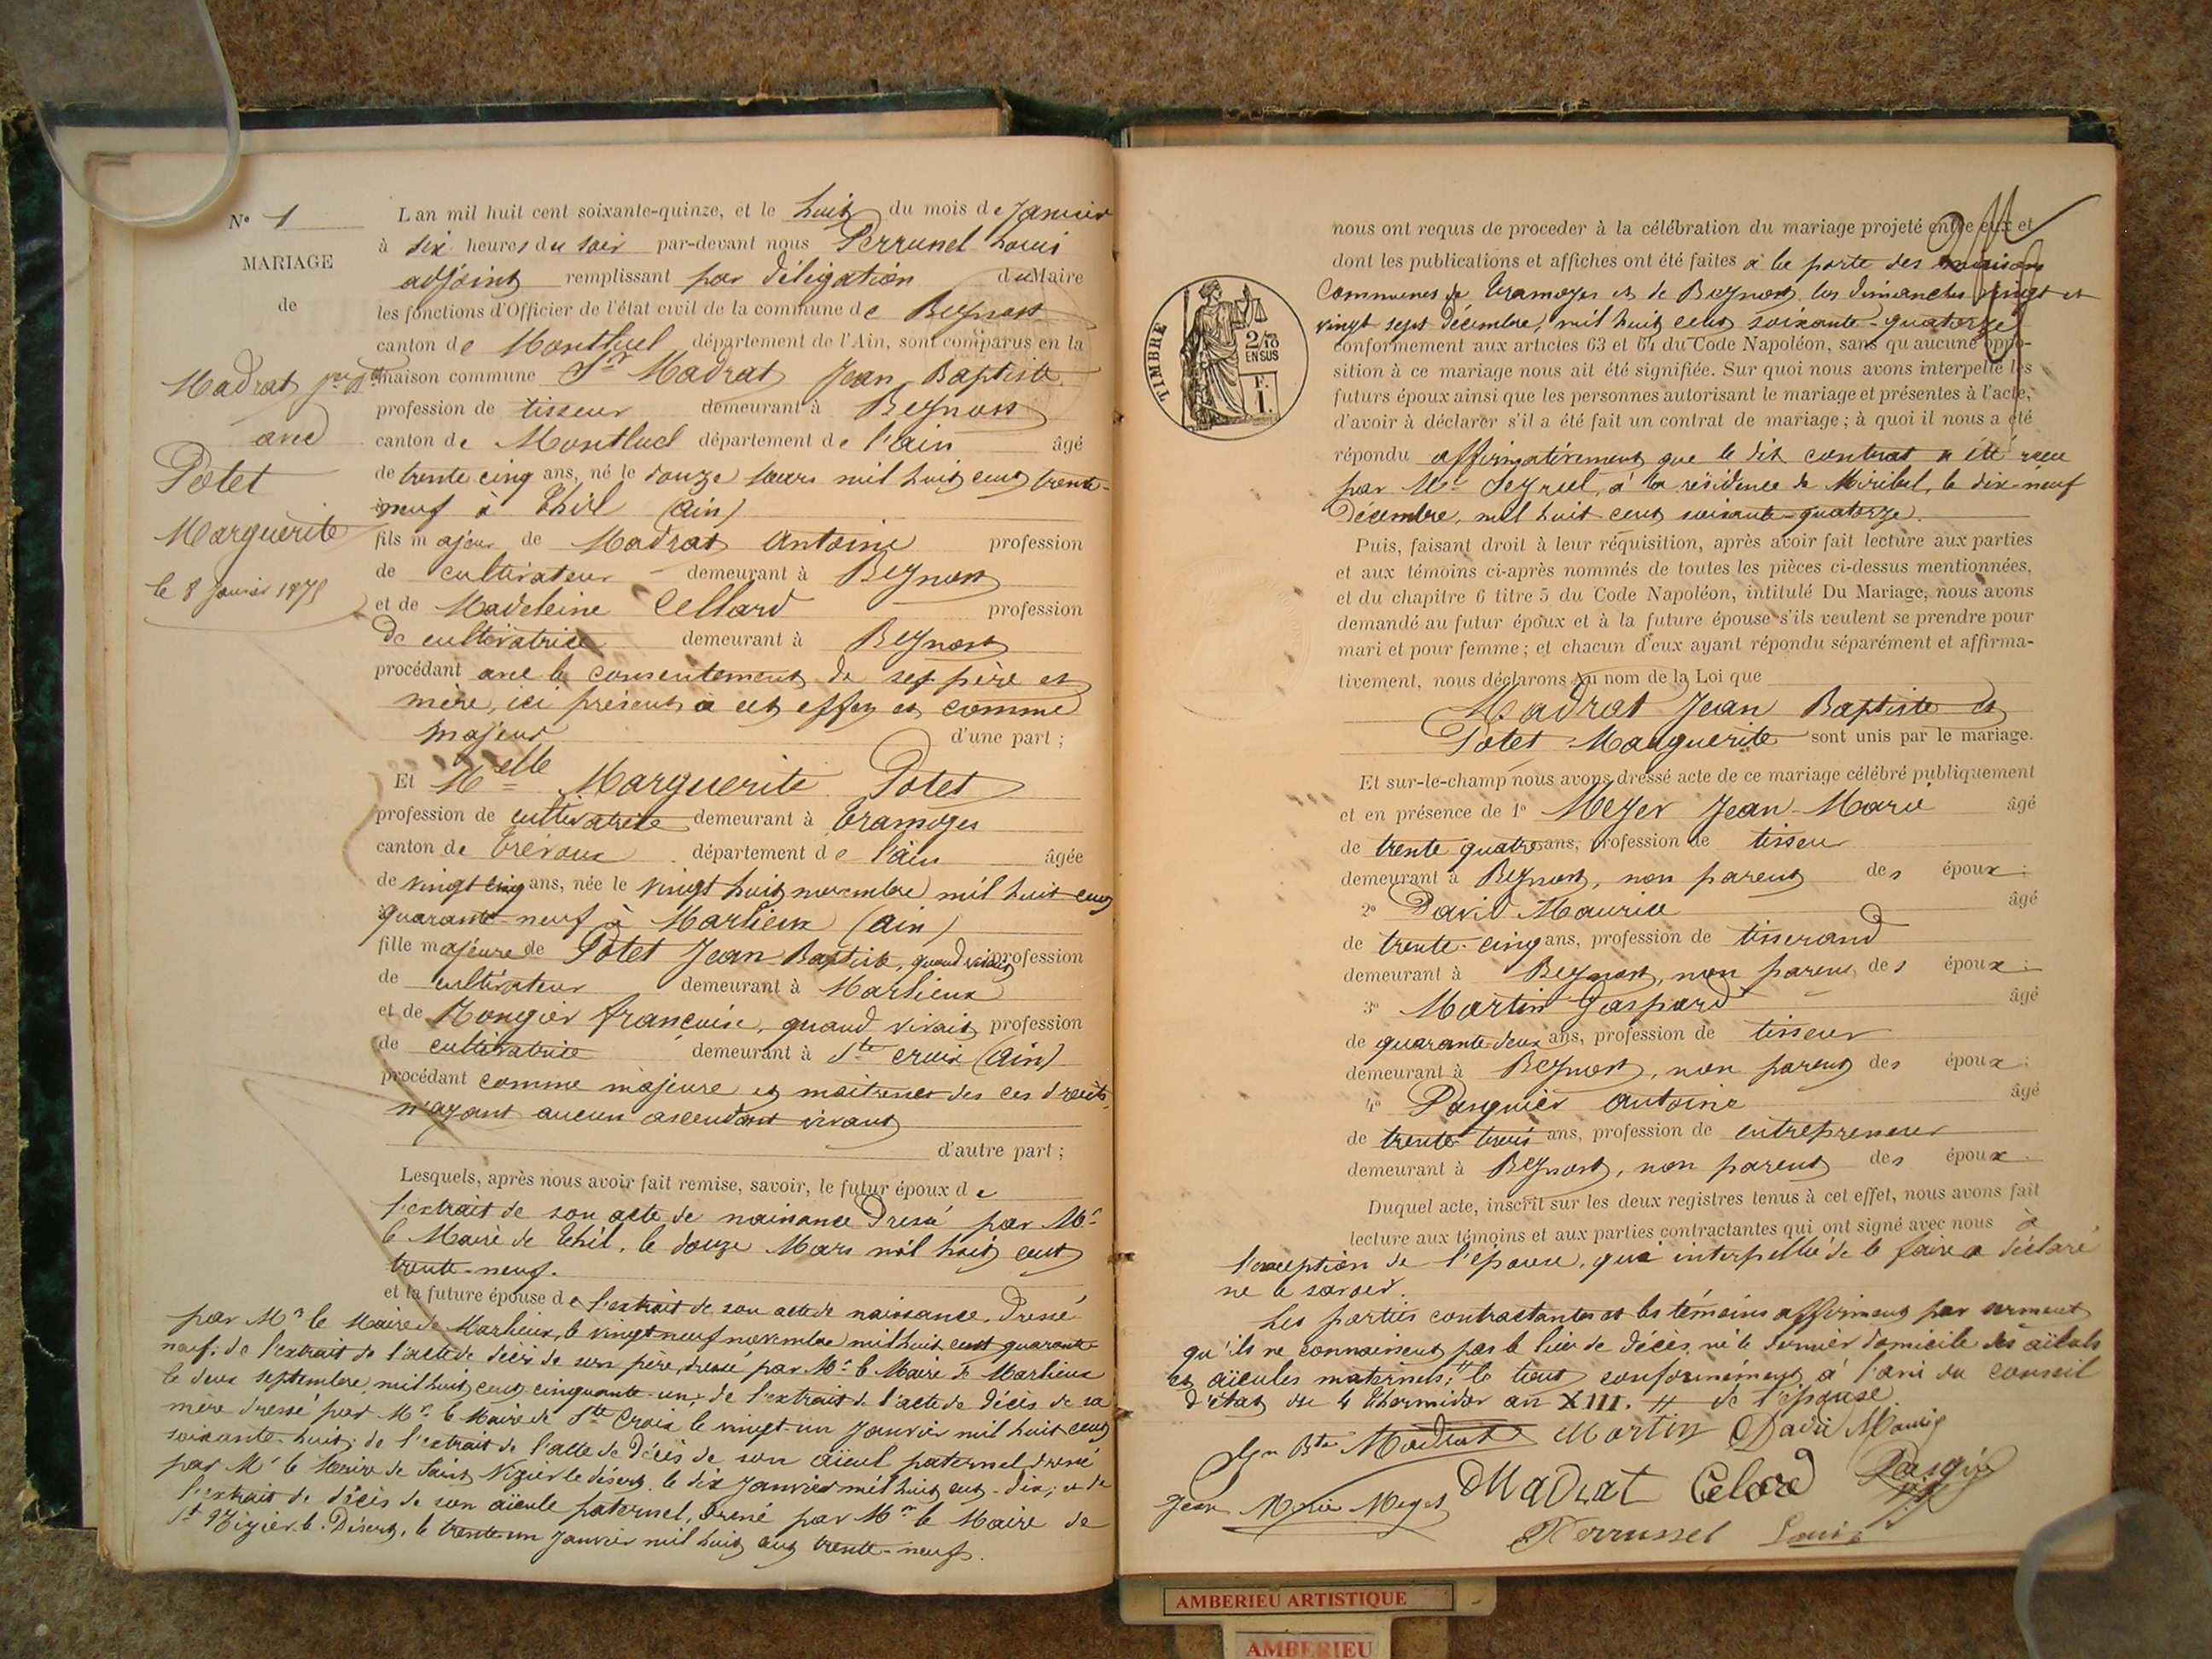 N° 1
MARIAGE
de
Madrat Jn Bte
avec
Potet
Marguerite
le 8 Janvier 1875
L'an mil huit cent soixante-quinze, et le huit du mois de Janvier
à six heures du soir par-devant nous Perrussel Louis
adjoint remplissant par délégation du Maire
les fonctions d'Officier de l'état civil de la commune de Beynost
canton de Montluel département de l'Ain, sont comparus en la
maison commune Sr Madrat Jean Baptiste
profession de tisseur demeurant à Beynost
canton de Montluel département de l'ain âgé
de trente cinq ans, né le douze mars mil huit cent trente-
neuf à Thil (ain)
fils majeur de Madrat Antoine profession
de cultivateur demeurant à Beynost
et de Madeleine Cellard profession
de cultivatrice demeurant à Beynost
procédant avec le consentement de ses père et
mère, ici présents à cet effet et comme
majeur d'une part ;
Et Melle Marguerite Potet
profession de cultivatrice demeurant à Tramoyes
canton de Trévoux département de l'ain âgée
de vingt cinq ans, née le vingt huit novembre mil huit cent
quarante-neuf à Marlieux (ain)
fille majeure de Potet Jean Baptiste, quand vivait profession
de cultivateur demeurant à Marlieux
et de Rongier françoise, quand vivait profession
de cultivatrice demeurant à Ste croix (ain)
procédant comme majeure et maitresse des ces droits,
n'ayant aucun ascendant vivant
d'autre part ;
Lesquels, après nous avoir fait remise, savoir, le futur époux de
l'extrait de son acte de naissance dressé par Mr
le Maire de Thil, le douze Mars mil huit cent
trente-neuf.
et la future épouse de l'extrait de son acte de naissance, dressé
par Mr le Maire de Marlieux, le vingt neuf novembre mil huit cent quarante
neuf; de l'extrait de l'acte de décès de son père, dressé par Mr le Maire de Marlieux
le deux septembre, mil huit cent cinquante-un; de l'extrait de l'acte de décès de sa
mère dressé par Mr le Maire de Ste Croix le vingt-un Janvier mil huit cent
soixante-huit; de l'extrait de l'acte de décès de son aïeul paternel dressé
par Mr le Maire de Saint Nizier le désert, le dix Janvier mil huit cent-dix; et de
l'extrait de décès de son aïeule paternel, dressé par Mr le Maire de
St Nizier-le-Désert, le trente un Janvier mil huit cent trente-neuf.
TIMBRE
2/10
EN SUS
F.
1.
nous ont requis de proceder à la célébration du mariage projeté entre eux et
dont les publications et affiches ont été faites à la porte des maisons
Communes de Tramoyes et de Beynost les dimanches vingt et
vingt sept décembre, mil huit cent soixante-quatorze
conformement aux articles 63 et 64 du Code Napoléon, sans qu'aucune oppo-
sition à ce mariage nous ait été signifiée. Sur quoi nous avons interpellé les
futurs époux ainsi que les personnes autorisant le mariage et présentes à l'acte,
d'avoir à déclarer s'il a été fait un contrat de mariage ; à quoi il nous a été
répondu affirmativement que le dit contrat a été reçu
par Me à la résidence de Miribel, le dix-neuf
Décembre, mil huit cent soixante-quatorze.
Puis, faisant droit à leur réquisition, après avoir fait lecture aux parties
et aux témoins ci-après nommés de toutes les pièces ci-dessus mentionnées,
et du chapitre 6 titre 5 du Code Napoléon, intitulé Du Mariage, nous avons
demandé au futur époux et à la future épouse s'ils veulent se prendre pour
mari et pour femme ; et chacun d'eux ayant répondu séparément et affirma-
tivement, nous déclarons Au nom de la Loi que
Madrat Jean Baptiste et
Potet Marguerite sont unis par le mariage.
Et sur-le-champ nous avons dressé acte de ce mariage célébré publiquement
et en présence de 1° Meyer Jean-Marie âgé
de trente quatre ans, profession de tisseur
demeurant à Beynost, non parent des époux ;
2° David Maurice âgé
de trente-cinq ans, profession de tisserand
demeurant à Beynost, non parent des époux ;
3° Martin Gaspard âgé
de quarante-deux ans, profession de tisseur
demeurant à Beynost, non parent des époux ;
4° Pasquier Antoine âgé
de trente-trois ans, profession de entrepreneur
demeurant à Beynost, non parent des époux.
Duquel acte, inscrit sur les deux registres tenus à cet effet, nous avons fait
lecture aux témoins et aux parties contractantes qui ont signé avec nous à
l'exception de l'épouse, qui interpellée de le faire a déclaré
ne le savoir.
Les parties contractantes et les témoins affirment par serment
qu'ils ne connaissent pas le lieu de décès, ni le dernier domicile des aïeuls
et aïeules maternels; # le tout conformément à l'avis du conseil
d'état du 4 thermidor an XIII. # de l'épouse
Jn Bte Madrat Martin David Mauric
Jean Marie Meyer Madrat Celard Pasquier
Perrussel Louis
AMBERIEU ARTISTIQUE
AMBERIEU